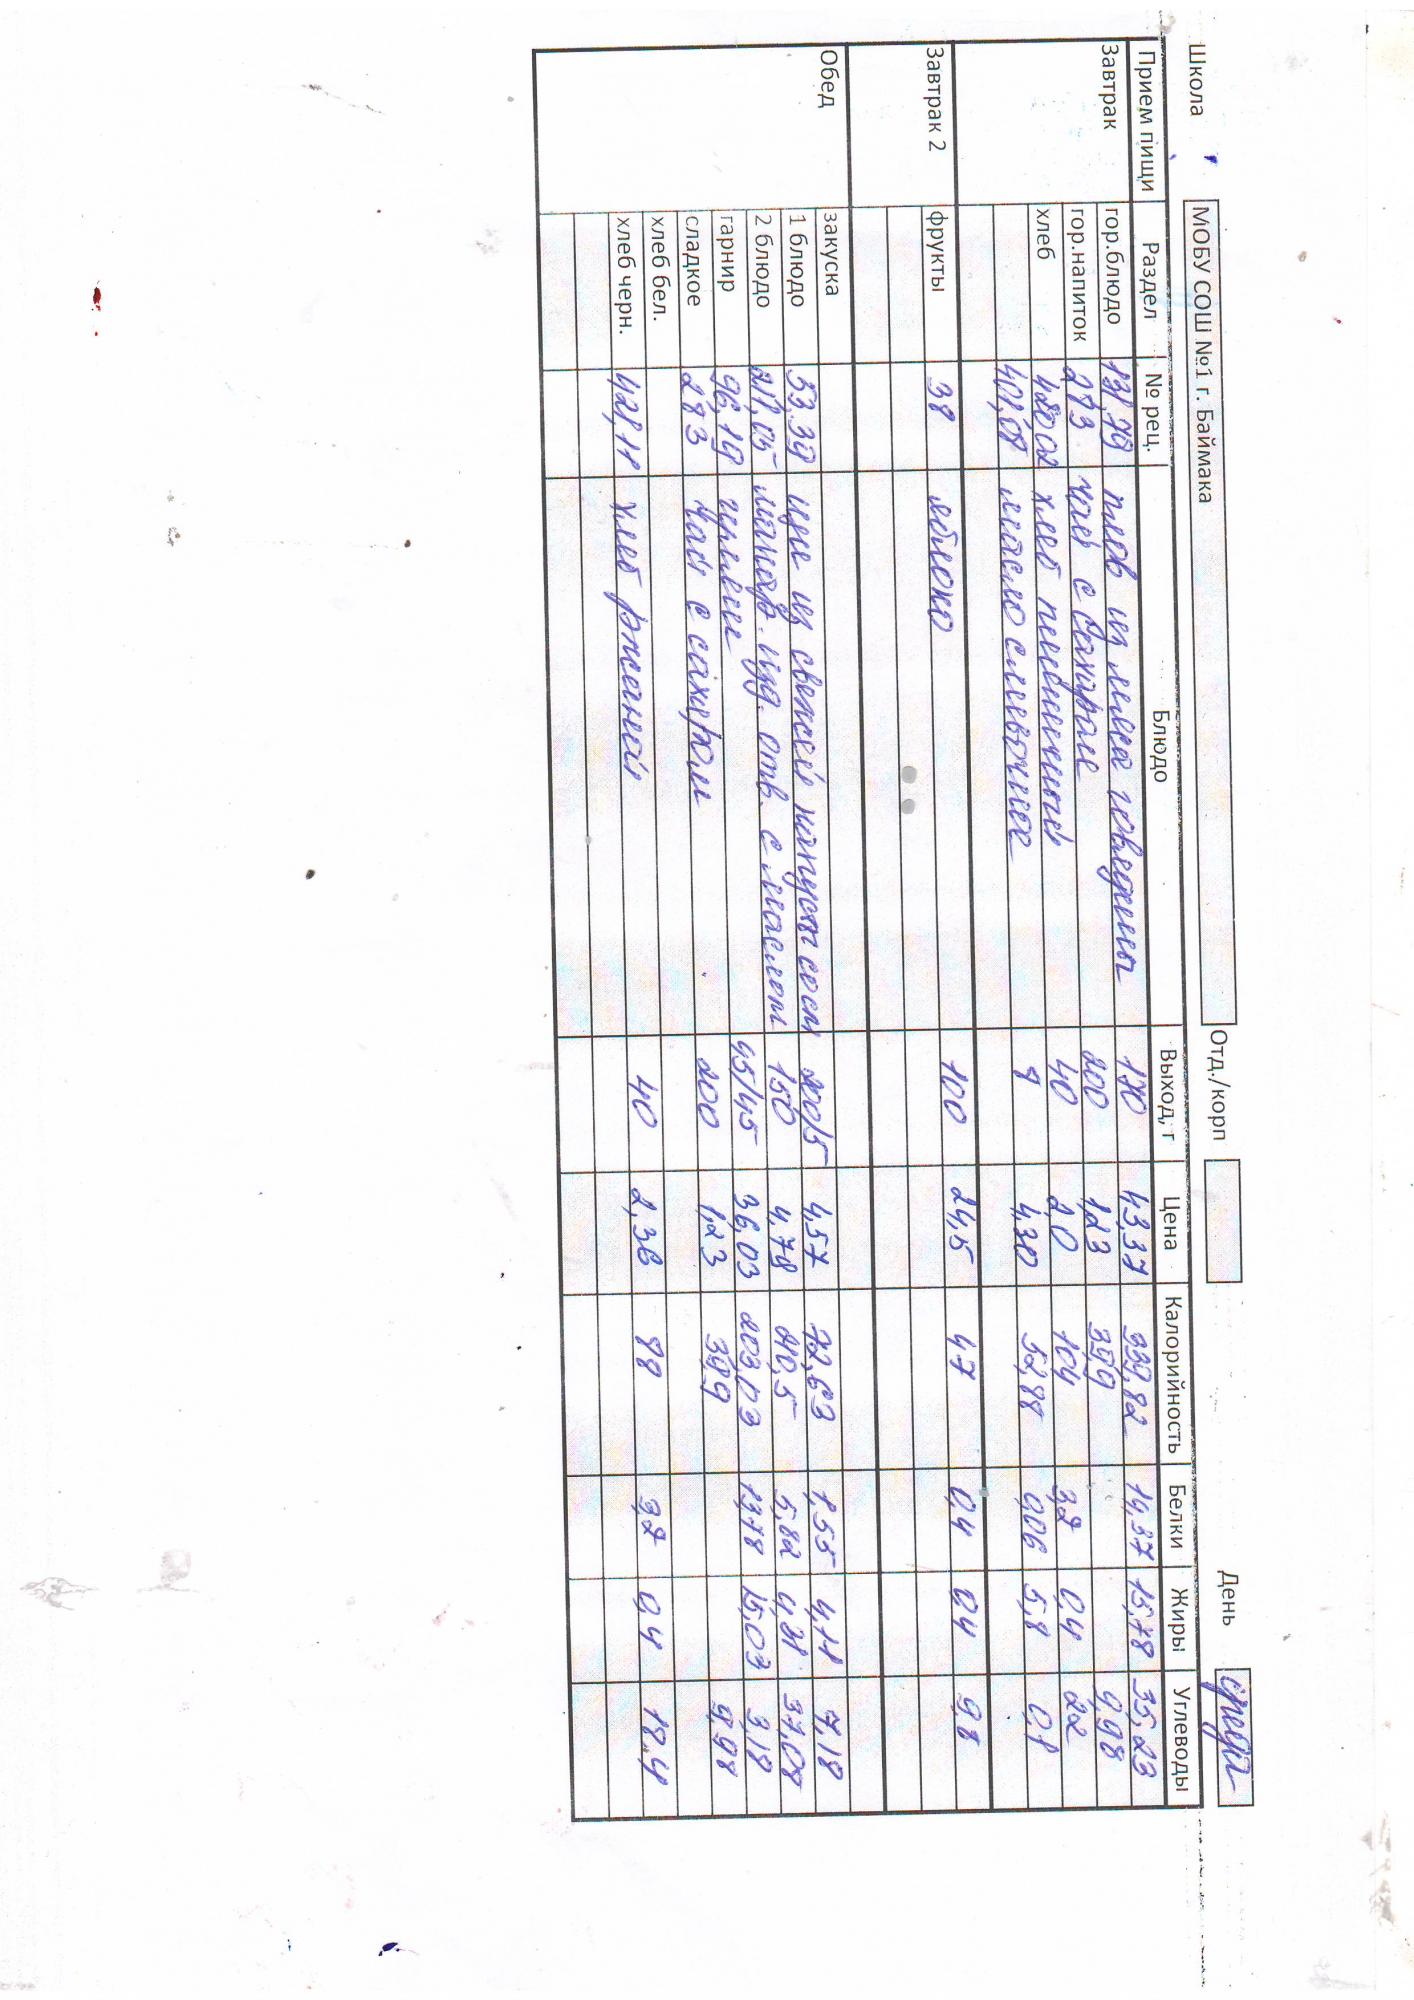 Школа МОБУ СОШ №1 г. Баймака Отд./корп День среда
Прием пищи Раздел № рец. Блюдо Выход, г Цена Калорийность Белки Жиры Углеводы
Завтрак гор.блюдо 131,79 плов из мяса говядины 180 43,37 339,82 14,37 15,78 35,23
гор.напиток 283 чай с сахаром 200 1,23 39,9 9,98
хлеб 420,02 хлеб пшеничный 40 2,0 104 3,2 0,4 22
401,08 масло сливочное 8 4,30 52,88 0,06 5,8 0,1
Завтрак 2 фрукты 38 яблоко 100 24,5 47 0,4 0,4 9,8
Обед закуска
1 блюдо 53,39 щи из свежей капусты со см 200/5 4,57 72,63 1,55 4,11 7,18
2 блюдо 211,05 макар. изд. отв. с маслом 150 4,78 210,5 5,82 4,31 37,08
гарнир 96,19 гуляш 45/45 36,03 203,03 13,78 15,03 3,18
сладкое 283 чай с сахаром 200 1,23 39,9 9,98
хлеб бел.
хлеб черн. 421,11 хлеб ржаной 40 2,36 88 3,2 0,4 18,4